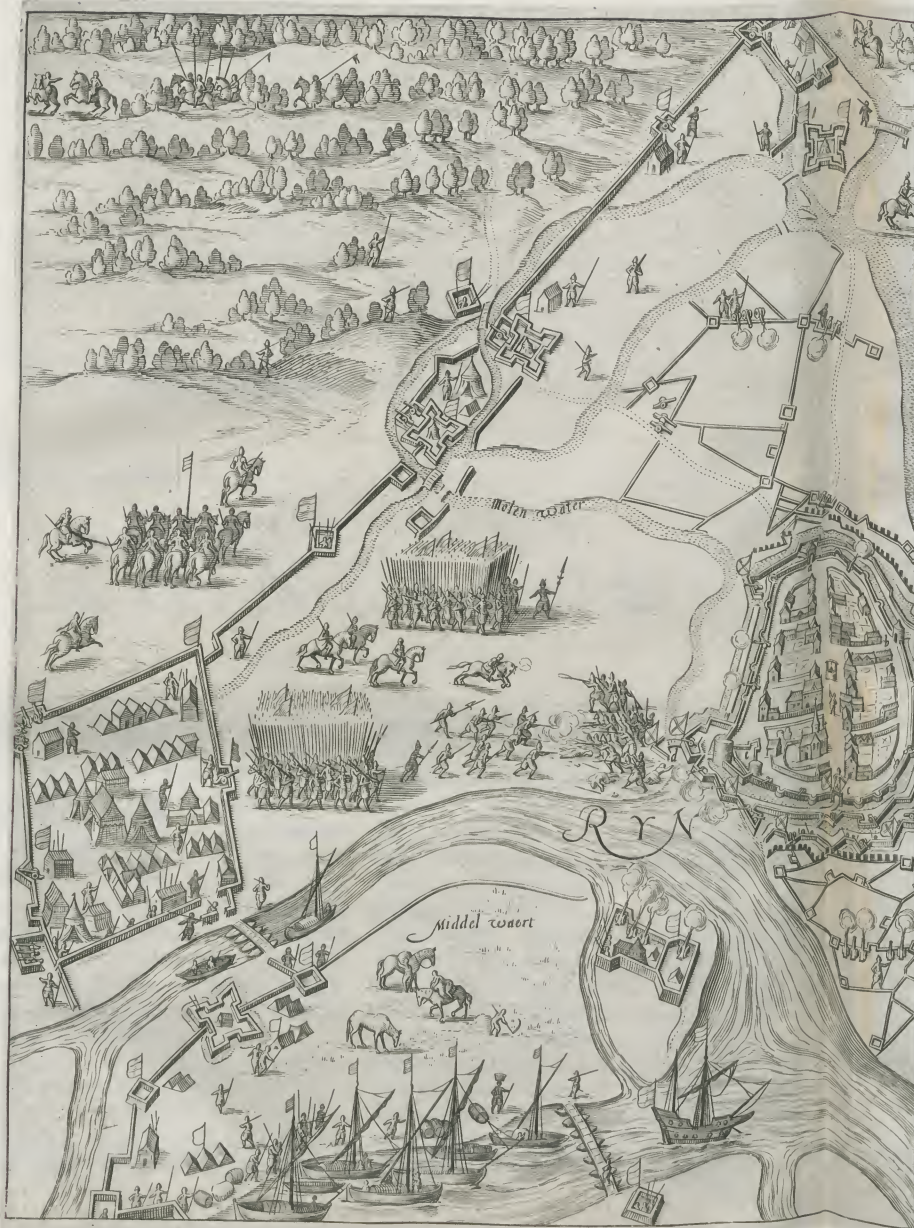 Molen water
RYN
Middel Waert